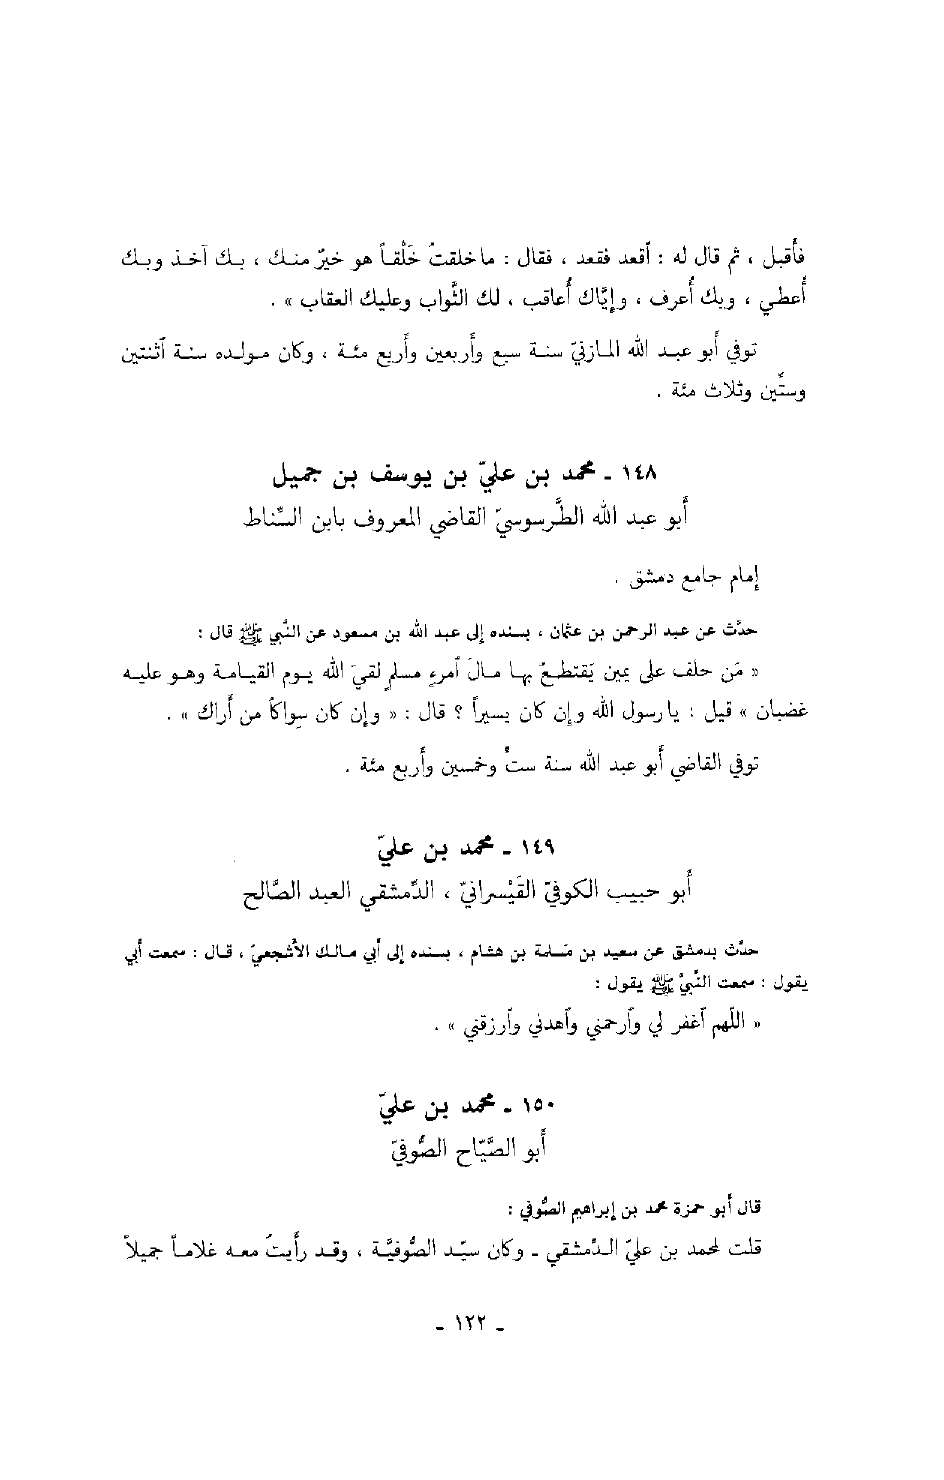 فأقبل ، ثم قال له : اَقعد فقعد ، فقال : ما خلقتُ خَلْقاً هو خيرٌ منك ، بك آخذ وبك
أُعطي ، وبك أُعرف ، وإيَّاك أُعاقب ، لك الثَّواب وعليك العقاب » .
توفي أبو عبد الله المازنيّ سنة سبع وأَربعين وأَربع مئة ، وكان مولده سنة اَثنتين
وستِّين وثلاث مئة .
١٤٨ ـ محمد بن عليّ بن يوسف بن جميل
أَبو عبد الله الطَّرسوسيّ القاضي المعروف بابن السِّناط
إمام جامع دمشق .
حدَّث عن عبد الرحمن بن عثمان ، بسنده إلى عبد الله بن مسعود عن النَّبي ﷺ قال :
« مَن حلف على يمين يَقتطعُ بها مالَ اَمرءٍ مسلمٍ لقيَ الله يوم القيامة وهو عليه
غضبان » قيل : يا رسول الله وإن كان يسيراً ؟ قال : « وإن كان سِواكاً من أَراك » .
توفي القاضي أَبو عبد الله سنة ستٍّ وخمسين وأَربع مئة .
١٤٩ ـ محمد بن عليّ
أَبو حبيب الكوفيّ القَيْسرانيّ ، الدِّمشقي العبد الصَّالح
حدَّث بدمشق عن سعيد بن مَسلمة بن هشام ، بسنده إلى أَبي مالك الأَشجعيّ ، قال : سمعت أَبي
يقول : سمعت النَّبيَّ ﷺ يقول :
« اللّهم اَغفر لي واَرحمني واَهدني واَرزقني » .
١٥٠ ـ محمد بن عليّ
أَبو الصَّيَّاح الصُّوفيّ
قال أَبو حمزة محمد بن إبراهيم الصُّوفي :
قلت لمحمد بن عليّ الدِّمشقي ـ وكان سيِّد الصُّوفيَّة ، وقد رأَيتُ معه غلاماً جميلاً
ـ ١٢٢ ـ